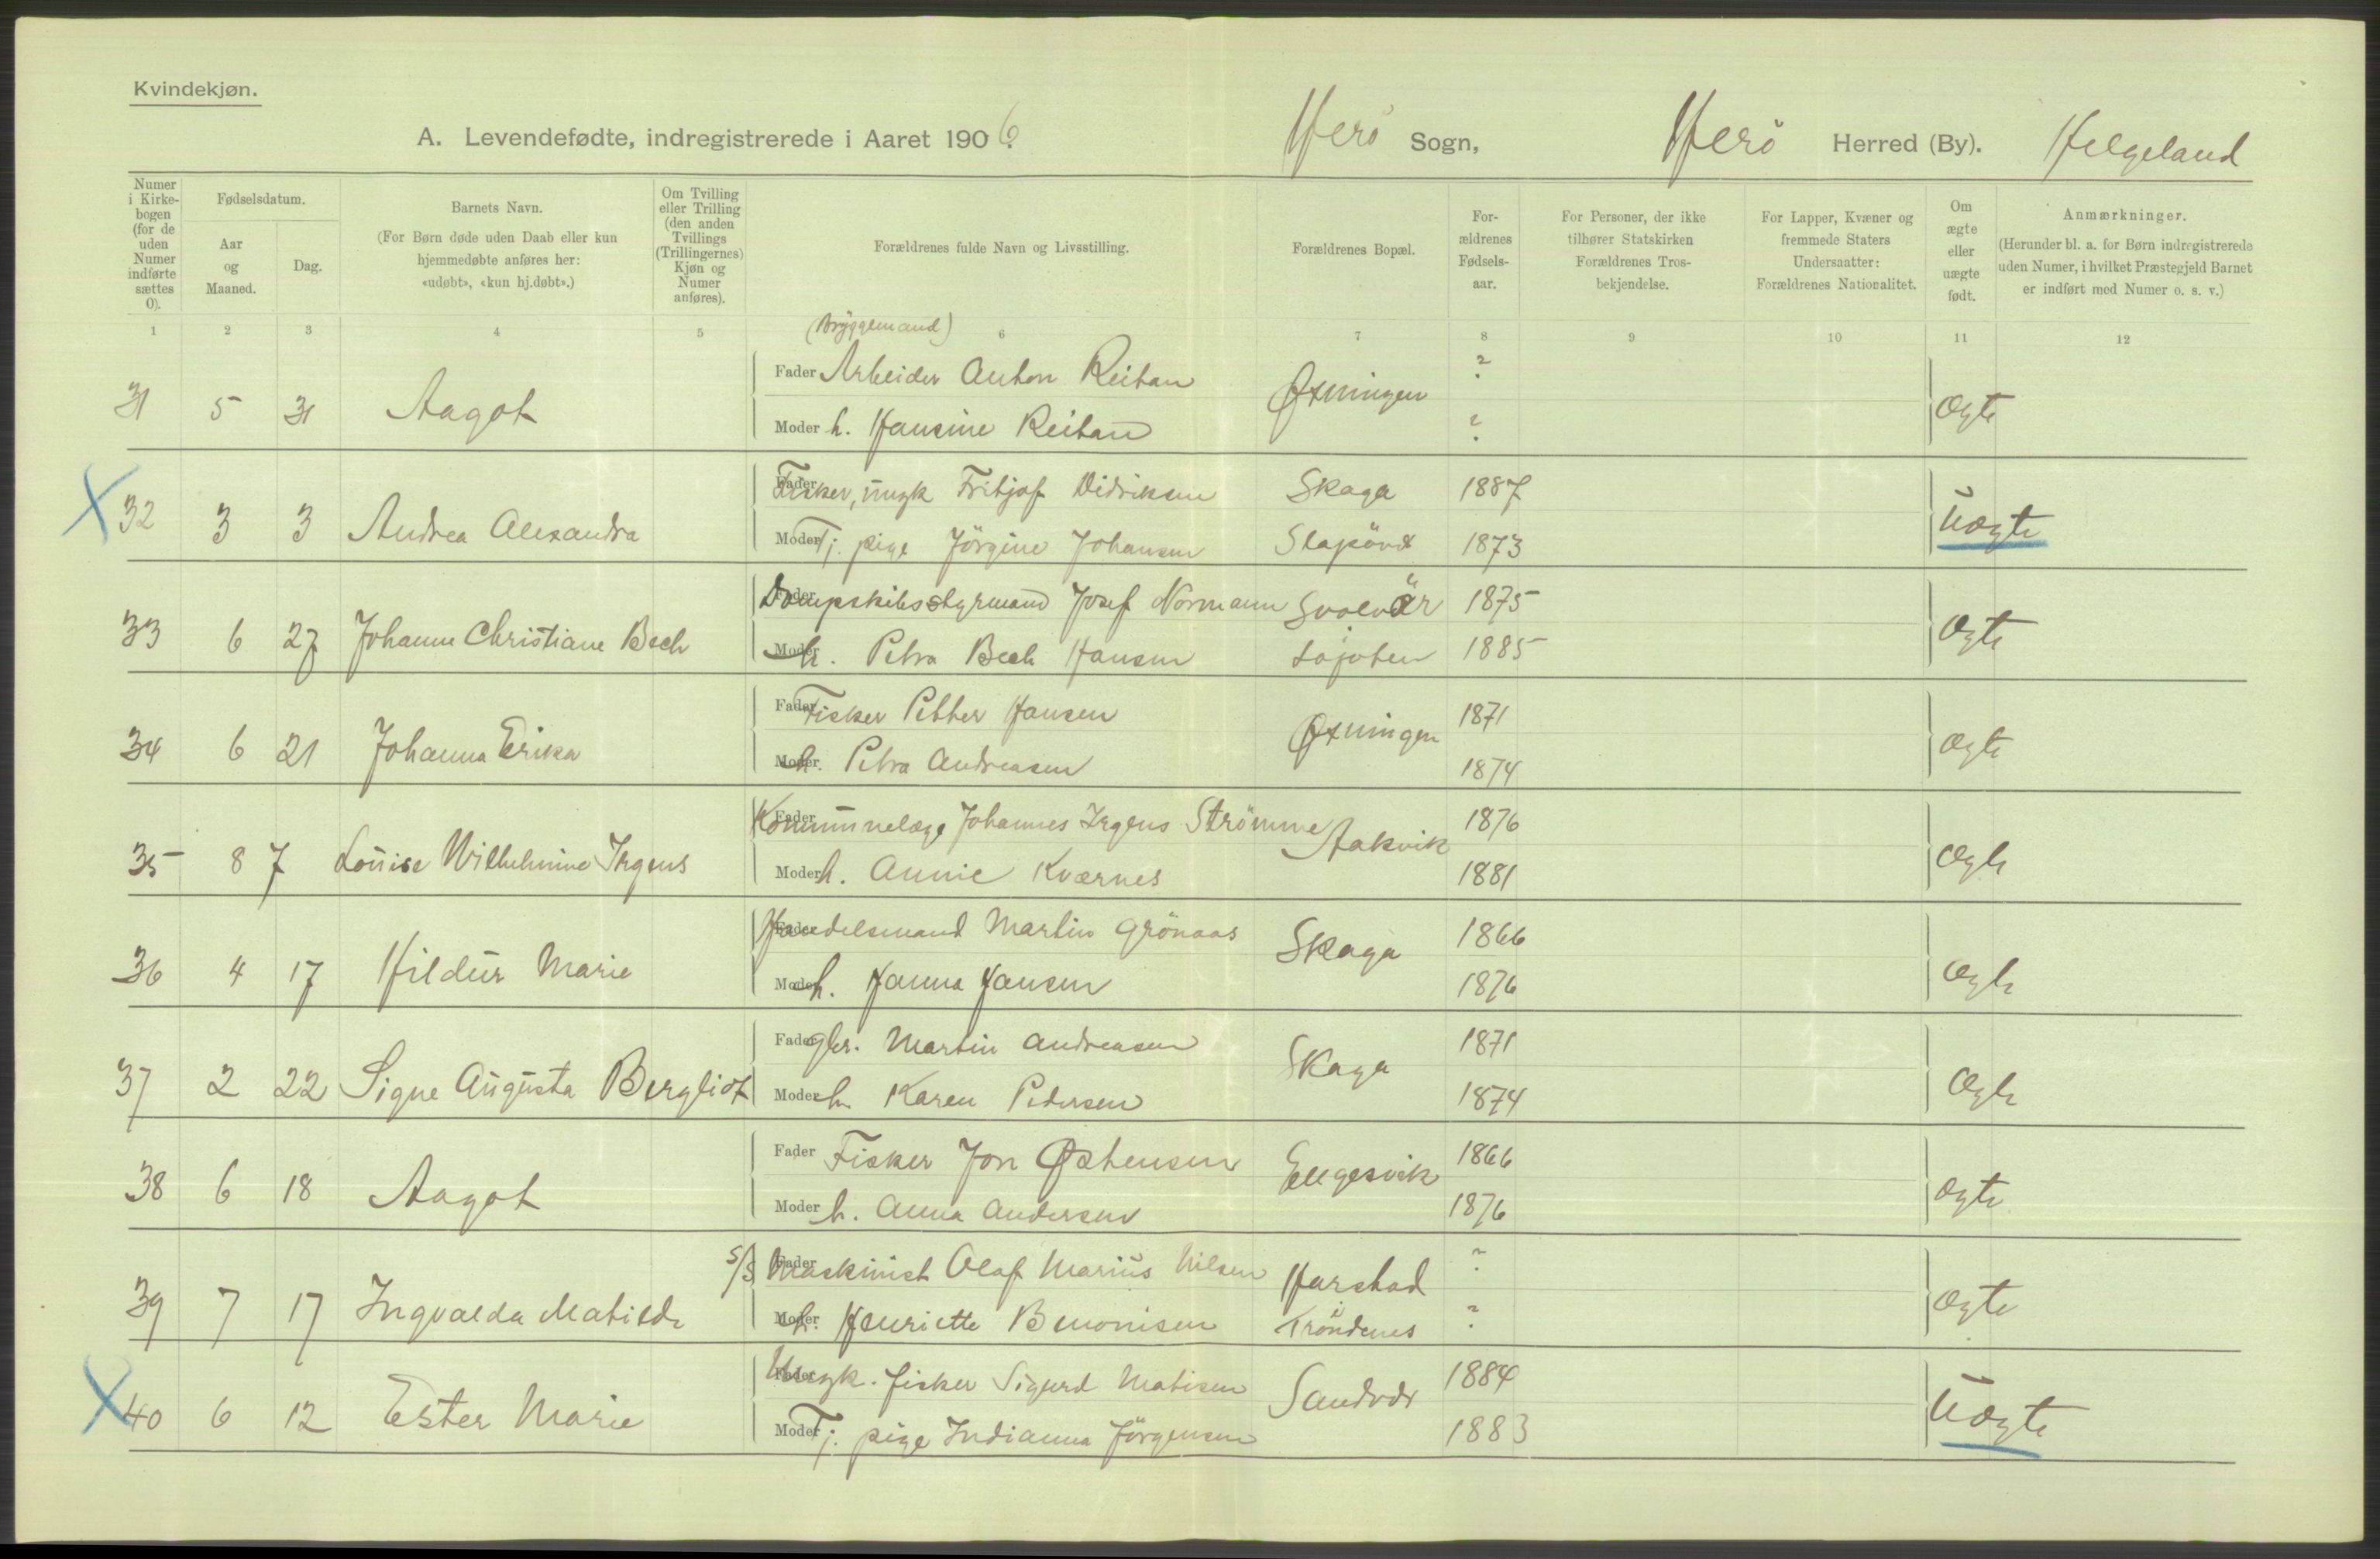 Kvindekjøn.
A. Levendefødte, indregistrerede i Aaret 1906. Herö Sogn, Herö Herred (By). Helgeland
Numer i Kirkebogen (for de uden Numer indførte sættes 0).
Fødselsdatum.
Aar og Maaned.
Dag.
Barnets Navn.
(For Børn døde uden Daab eller kun hjemmedøbte anføres her: «udøbt», «kun hj.døbt».)
Om Tvilling eller Trilling (den anden Tvillings (Trillingernes) Kjøn og Numer anføres).
Forældrenes fulde Navn og Livsstilling.
Forældrenes Bopæl.
Forældrenes Fødselsaar.
For Personer, der ikke tilhører Statskirken Forældrenes Trosbekjendelse.
For Lapper, Kvæner og fremmede Staters Undersaatter: Forældrenes Nationalitet.
Om ægte eller uægte født.
Anmærkninger.
(Herunder bl. a. for Børn indregistrerede uden Numer, i hvilket Præstegjeld Barnet er indført med Numer o. s. v.)
1 2 3 4 5 6 7 8 9 10 11 12
(Bryggemand)
31 5 31 Aagot Fader Arbeider Anton Reitan Øxningen ? ægte
Moder h. Hansine Reitan ?
X 32 3 3 Andrea Alexandra Fader Fisker, ungk Fritjof Didriksen Skaga 1887 uægte
Moder Tj. pige Jörgine Johansen Slapöen 1873
33 6 27 Johanne Christiane Bech Fader Dampskibsstyrmand Josef Normann Svolvär 1875 ægte
Moder h. Petra Bech Hansen Lofoten 1885
34 6 21 Johanna Erika Fader Fisker Petter Hansen Øxningen 1871 ægte
Moder h. Petra Andreasen 1874
35 8 7 Louise Wilhelmine Irgens Fader Kommunelæge Johannes Irgens Strömme Aakvik 1876 ægte
Moder h. Annie Kværnes 1881
36 4 17 Hildur Marie Fader Handelsmand Martin Grönaas Skaga 1866 ægte
Moder h. Hanna Hansen 1876
37 2 22 Signe Augusta Bergliot Fader gbr. Martin Andreasen Skaga 1871 ægte
Moder h. Karen Pedersen 1874
38 6 18 Aagot Fader Fisker Jon Østensen Engesvik 1866 ægte
Moder h. Anna Andersen 1876
39 7 17 Ingvalda Matilde Fader S/S Maskinist Olaf Marius Nilsen Harstad ? ægte
Moder h. Henriette Benonisen Tröndenes ?
X 40 6 12 Ester Marie Fader Ungk. fisker Sigurd Matisen Sandvær 1884 uægte
Moder Tj. pige Indianna Jörgensen 1883